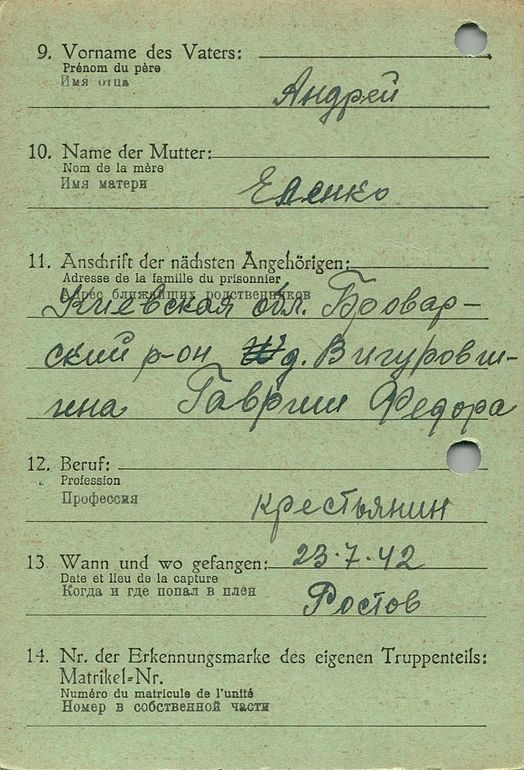 9. Vorname des Vaters:
Prénom du père
Имя отца
Андрей
10. Name der Mutter:
Nom de la mère
Имя матери
Еленко
11. Anschrift der nächsten Angehörigen:
Adresse de la famille du prisonnier
Адрес ближайших родственников
Киевская обл. Бровар-
ский р-он д. Вигуровщ-
ина Гаврилии Федора
12. Beruf:
Profession
Профессия
крестьянин
13. Wann und wo gefangen: 23.7.42
Date et lieu de la capture
Когда и где попал в плен
Ростов
14. Nr. der Erkennungsmarke des eigenen Truppenteils:
Matrikel=Nr.
Numéro du matricule de l'unité
Номер в собственной части